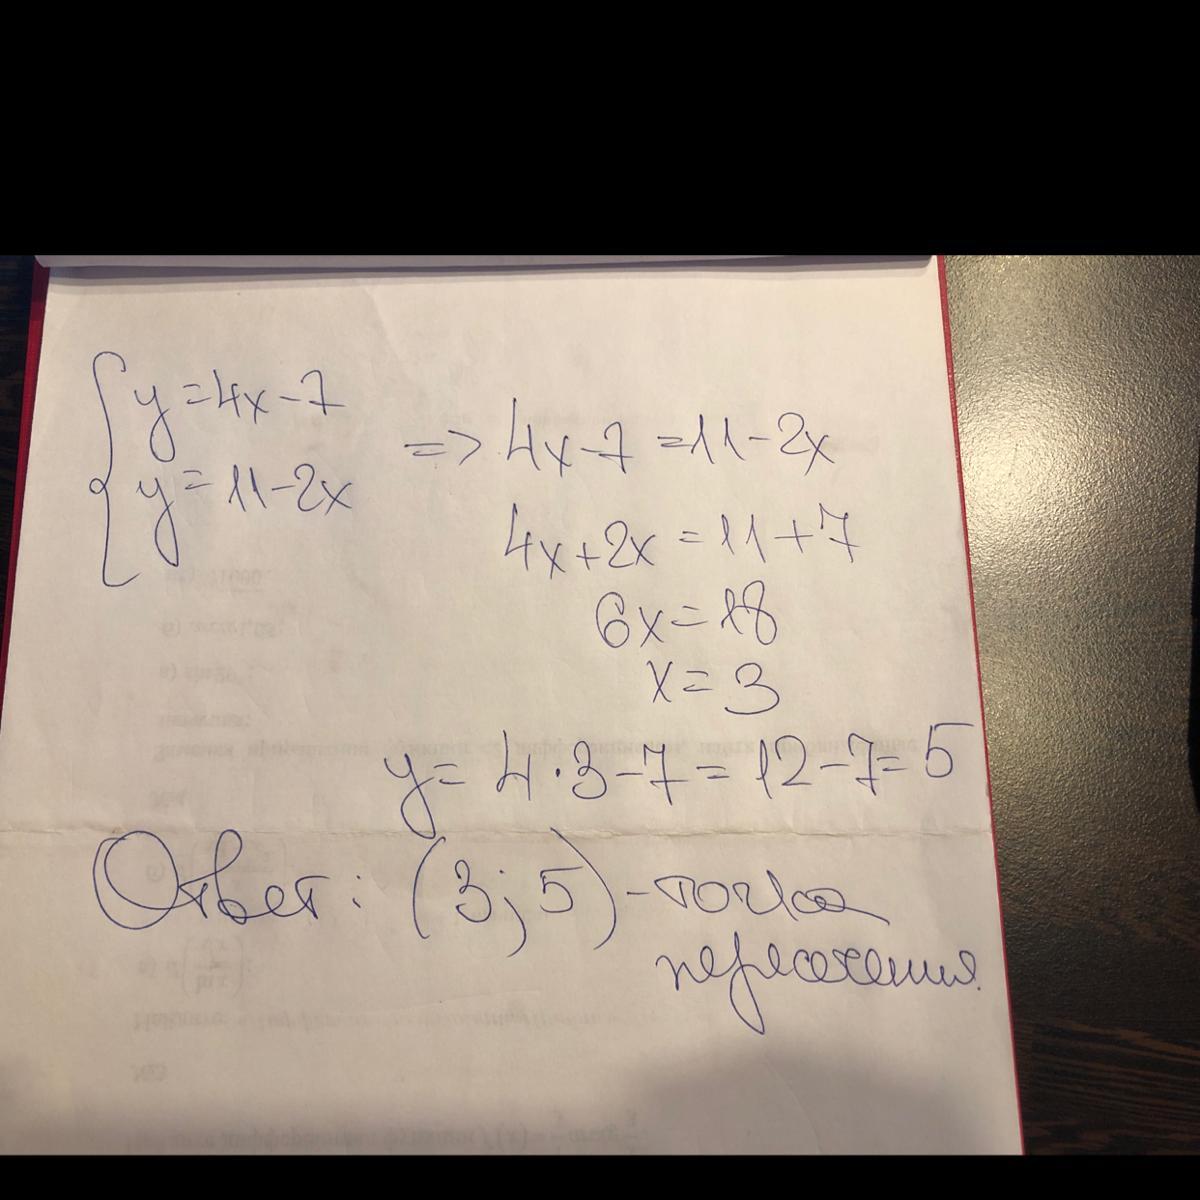 y=4x-7
y=11-2x
=> 4x-7=11-2x
4x+2x=11+7
6x=18
x=3
y=4·3-7=12-7=5
Ответ: (3;5)-точка
пересечения.